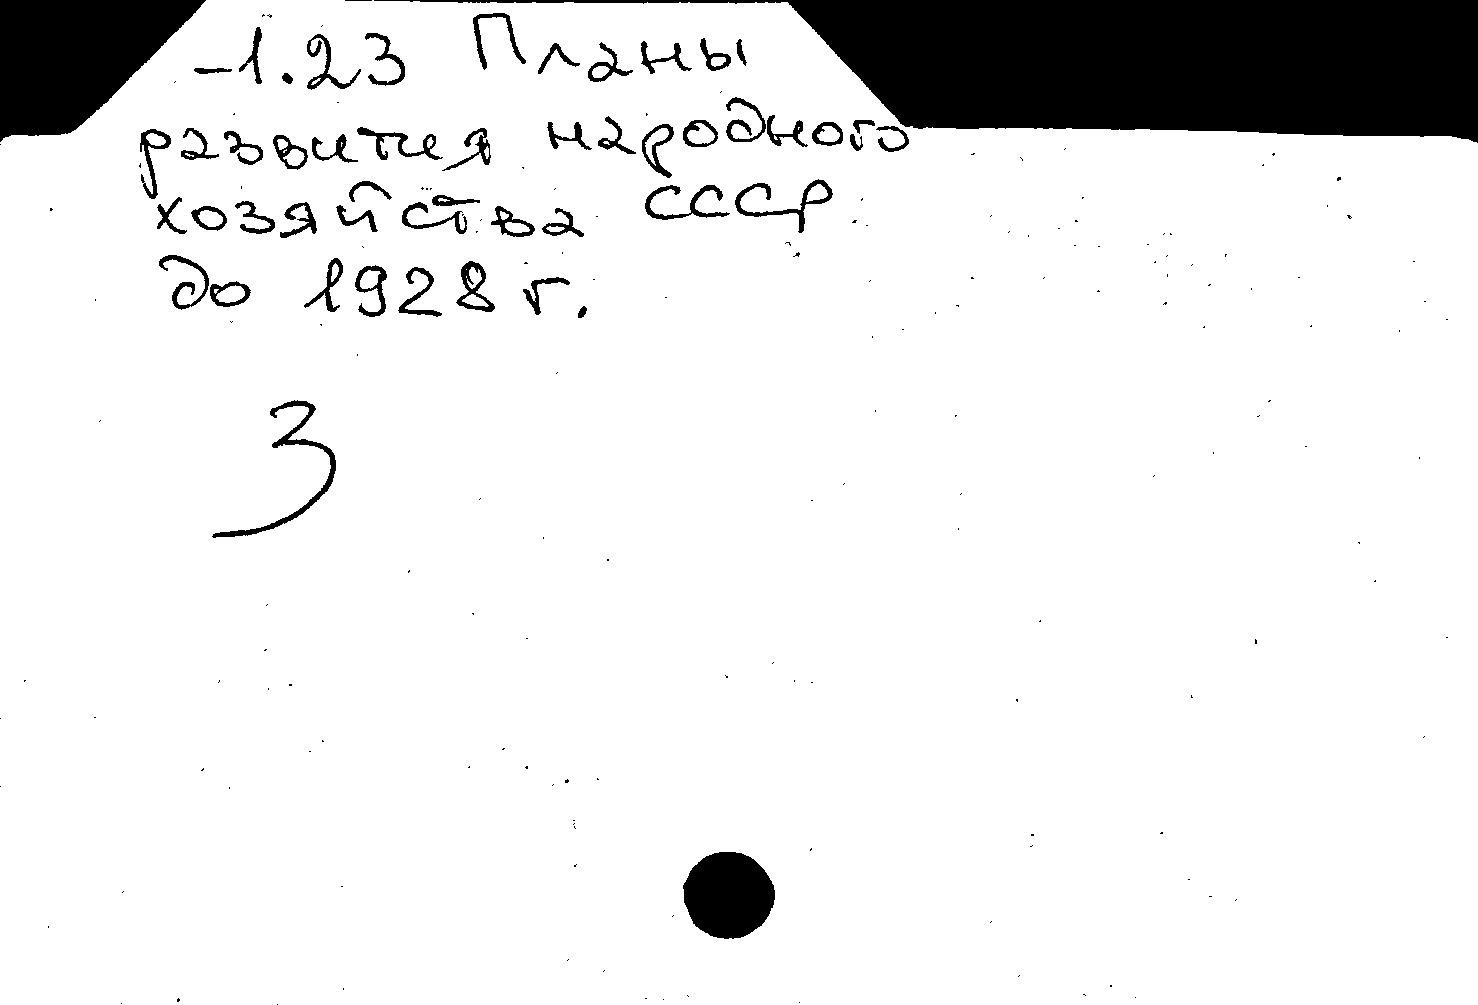 -1.23 Планы
развития народного
хозяйства СССР
до 1928 г.
3